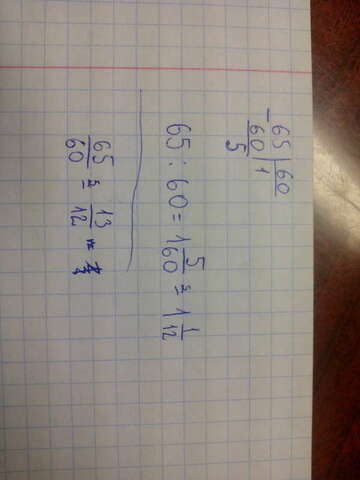 - 65 | 60
60 | 1
5
65 : 60 = 1 5/60 = 1 1/12
65/60 = 13/12 =